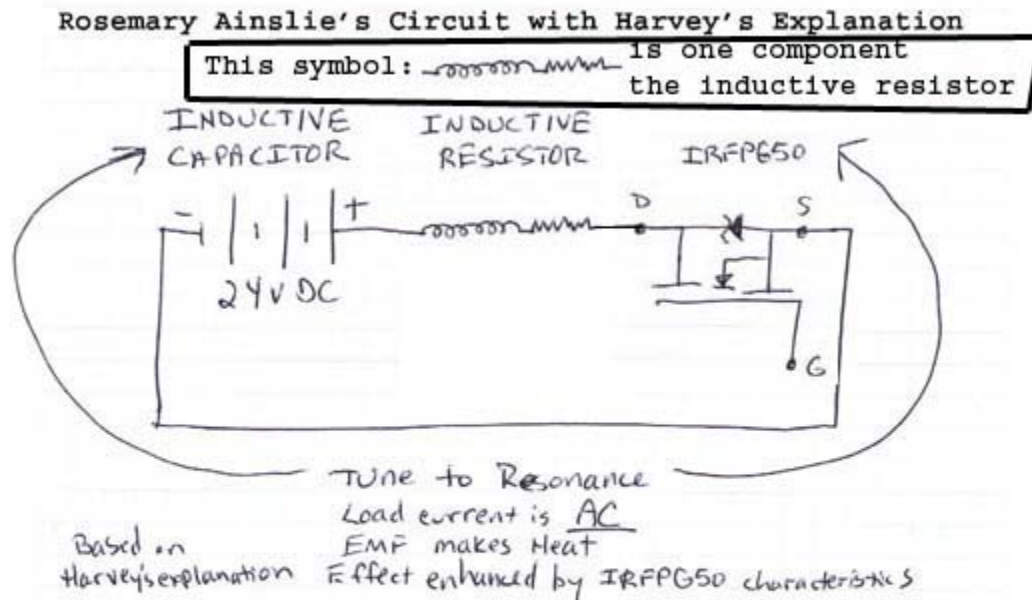 Rosemary Ainslie's Circuit with Harvey's Explanation
This symbol: is one component
the inductive resistor
INDUCTIVE
CAPACITOR
INDUCTIVE
RESISTOR
IRFPG50
- +
D
S
24V DC
G
Tune to Resonance
Load current is AC
EMF makes Heat
Effect enhanced by IRFPG50 characteristics
Based on
Harvey's explanation